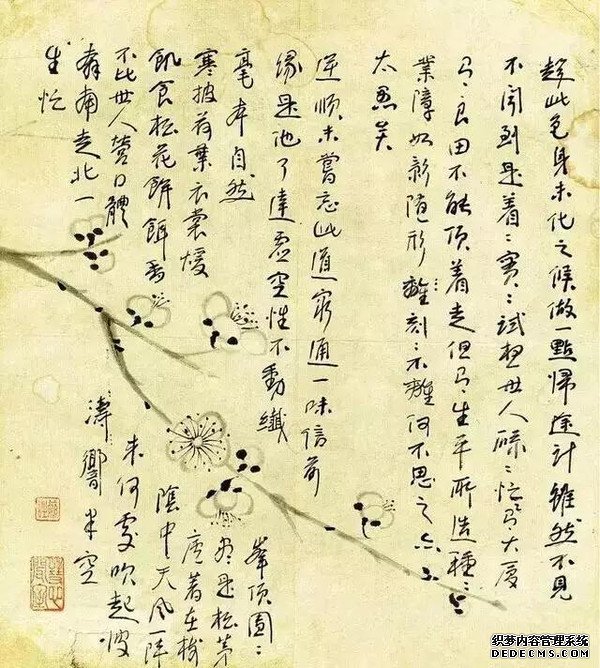 趂此色身未化之候做一點歸途計雖然不見
不聞到是着〻實〻試想世人碌〻忙為大廈
為良田不能頂着走但為生平所造種〻
業障如影隨形離刻〻不離何不思之亦
太愚矣
逆順未嘗忘此道窮通一味信前
緣是他了達虛空性不動纖
毫本自然
寒披荷葉衣裳煖
飢食松花餅餌香
不比世人營口體
奔南走北一
生忙
峯頂團〻
盡是松茅
廬著在樹
陰中天風一陣
來何處吹起波
濤響半空
织梦内容管理系统
DEDECMS.COM